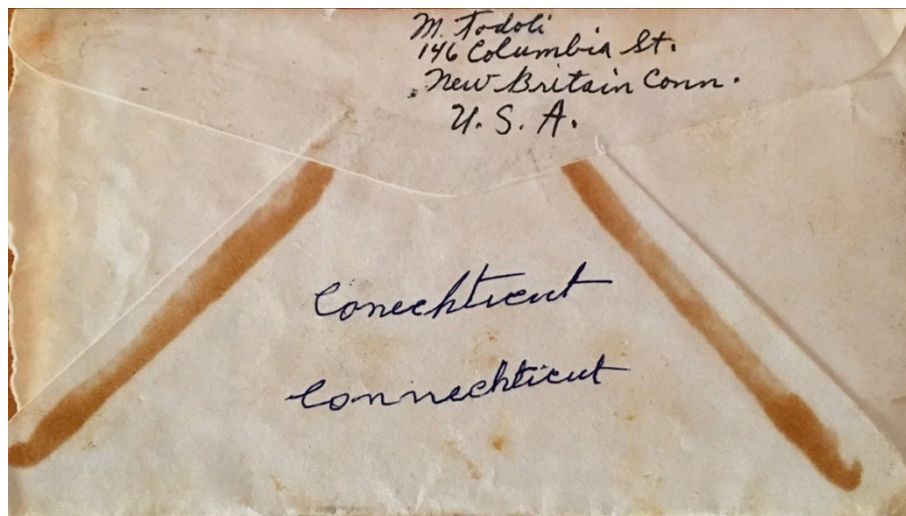 M. Todoli
146 Columbia St.
New Britain Conn.
U. S. A.
Conechticut
Connechticut